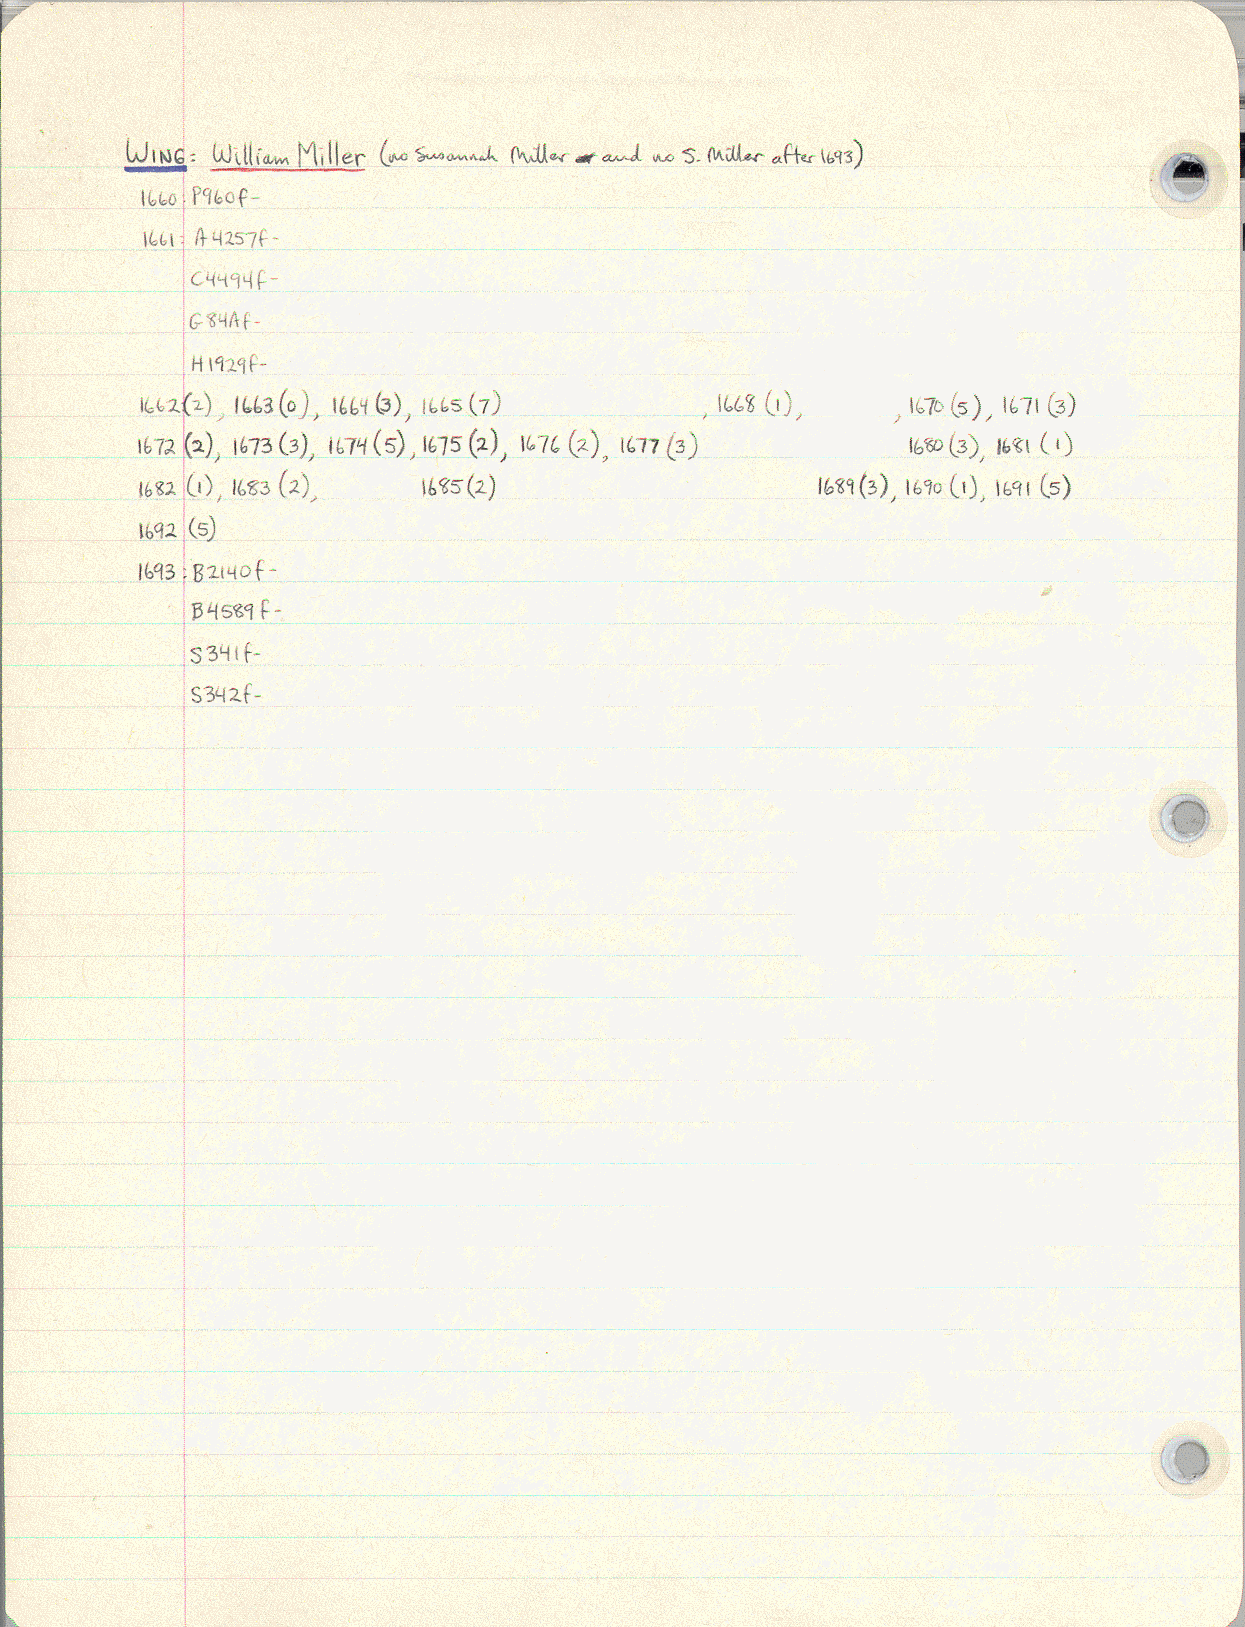 WING: William Miller (no Susannah Miller and no S. Miller after 1693)
1660: P960f-
1661: A4257f-
C4494f-
G84Af-
H1929f-
1662(2), 1663(0), 1664(3), 1665(7) , 1668(1), , 1670(5), 1671(3)
1672(2), 1673(3), 1674(5), 1675(2), 1676(2), 1677(3) 1680(3), 1681(1)
1682(1), 1683(2), 1685(2) 1689(3), 1690(1), 1691(5)
1692(5)
1693: B2140f-
B4589f-
S341f-
S342f-